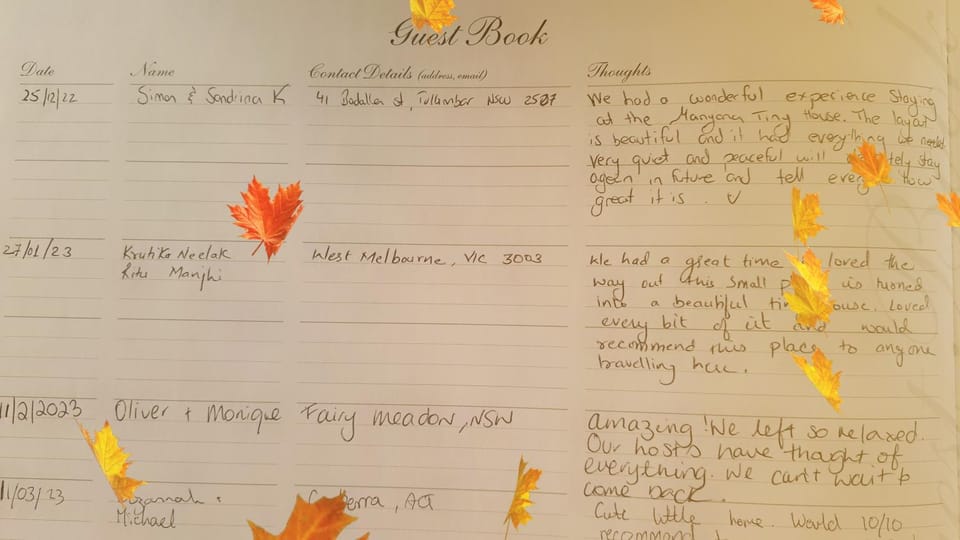 Guest Book
Date Name Contact Details (address, email) Thoughts
25/12/22 Simon & Sandrina K 41 Badalla St, Tullimbar NSW 2507 We had a wonderful experience Staying
at the Manyana Tiny House. The layout
is beautiful and it had everything we need
Very quiet and peaceful will stay
again in future and tell how
great it is.
27/01/23 Krutika Neelak West Melbourne, VIC 3003 We had a great time loved the
Ritu Manjhi way out this small is turned
into a beautiful Loved
every bit of it and would
recommend this place to anyone
travelling here.
11/2/2023 Oliver + Monique Fairy meadow, NSW amazing! We left so relaxed.
Our hosts have thaught of
everything. We can't wait to
come back.
1/03/23 ACT
Michael Cute little home. Would 10/10
recommend